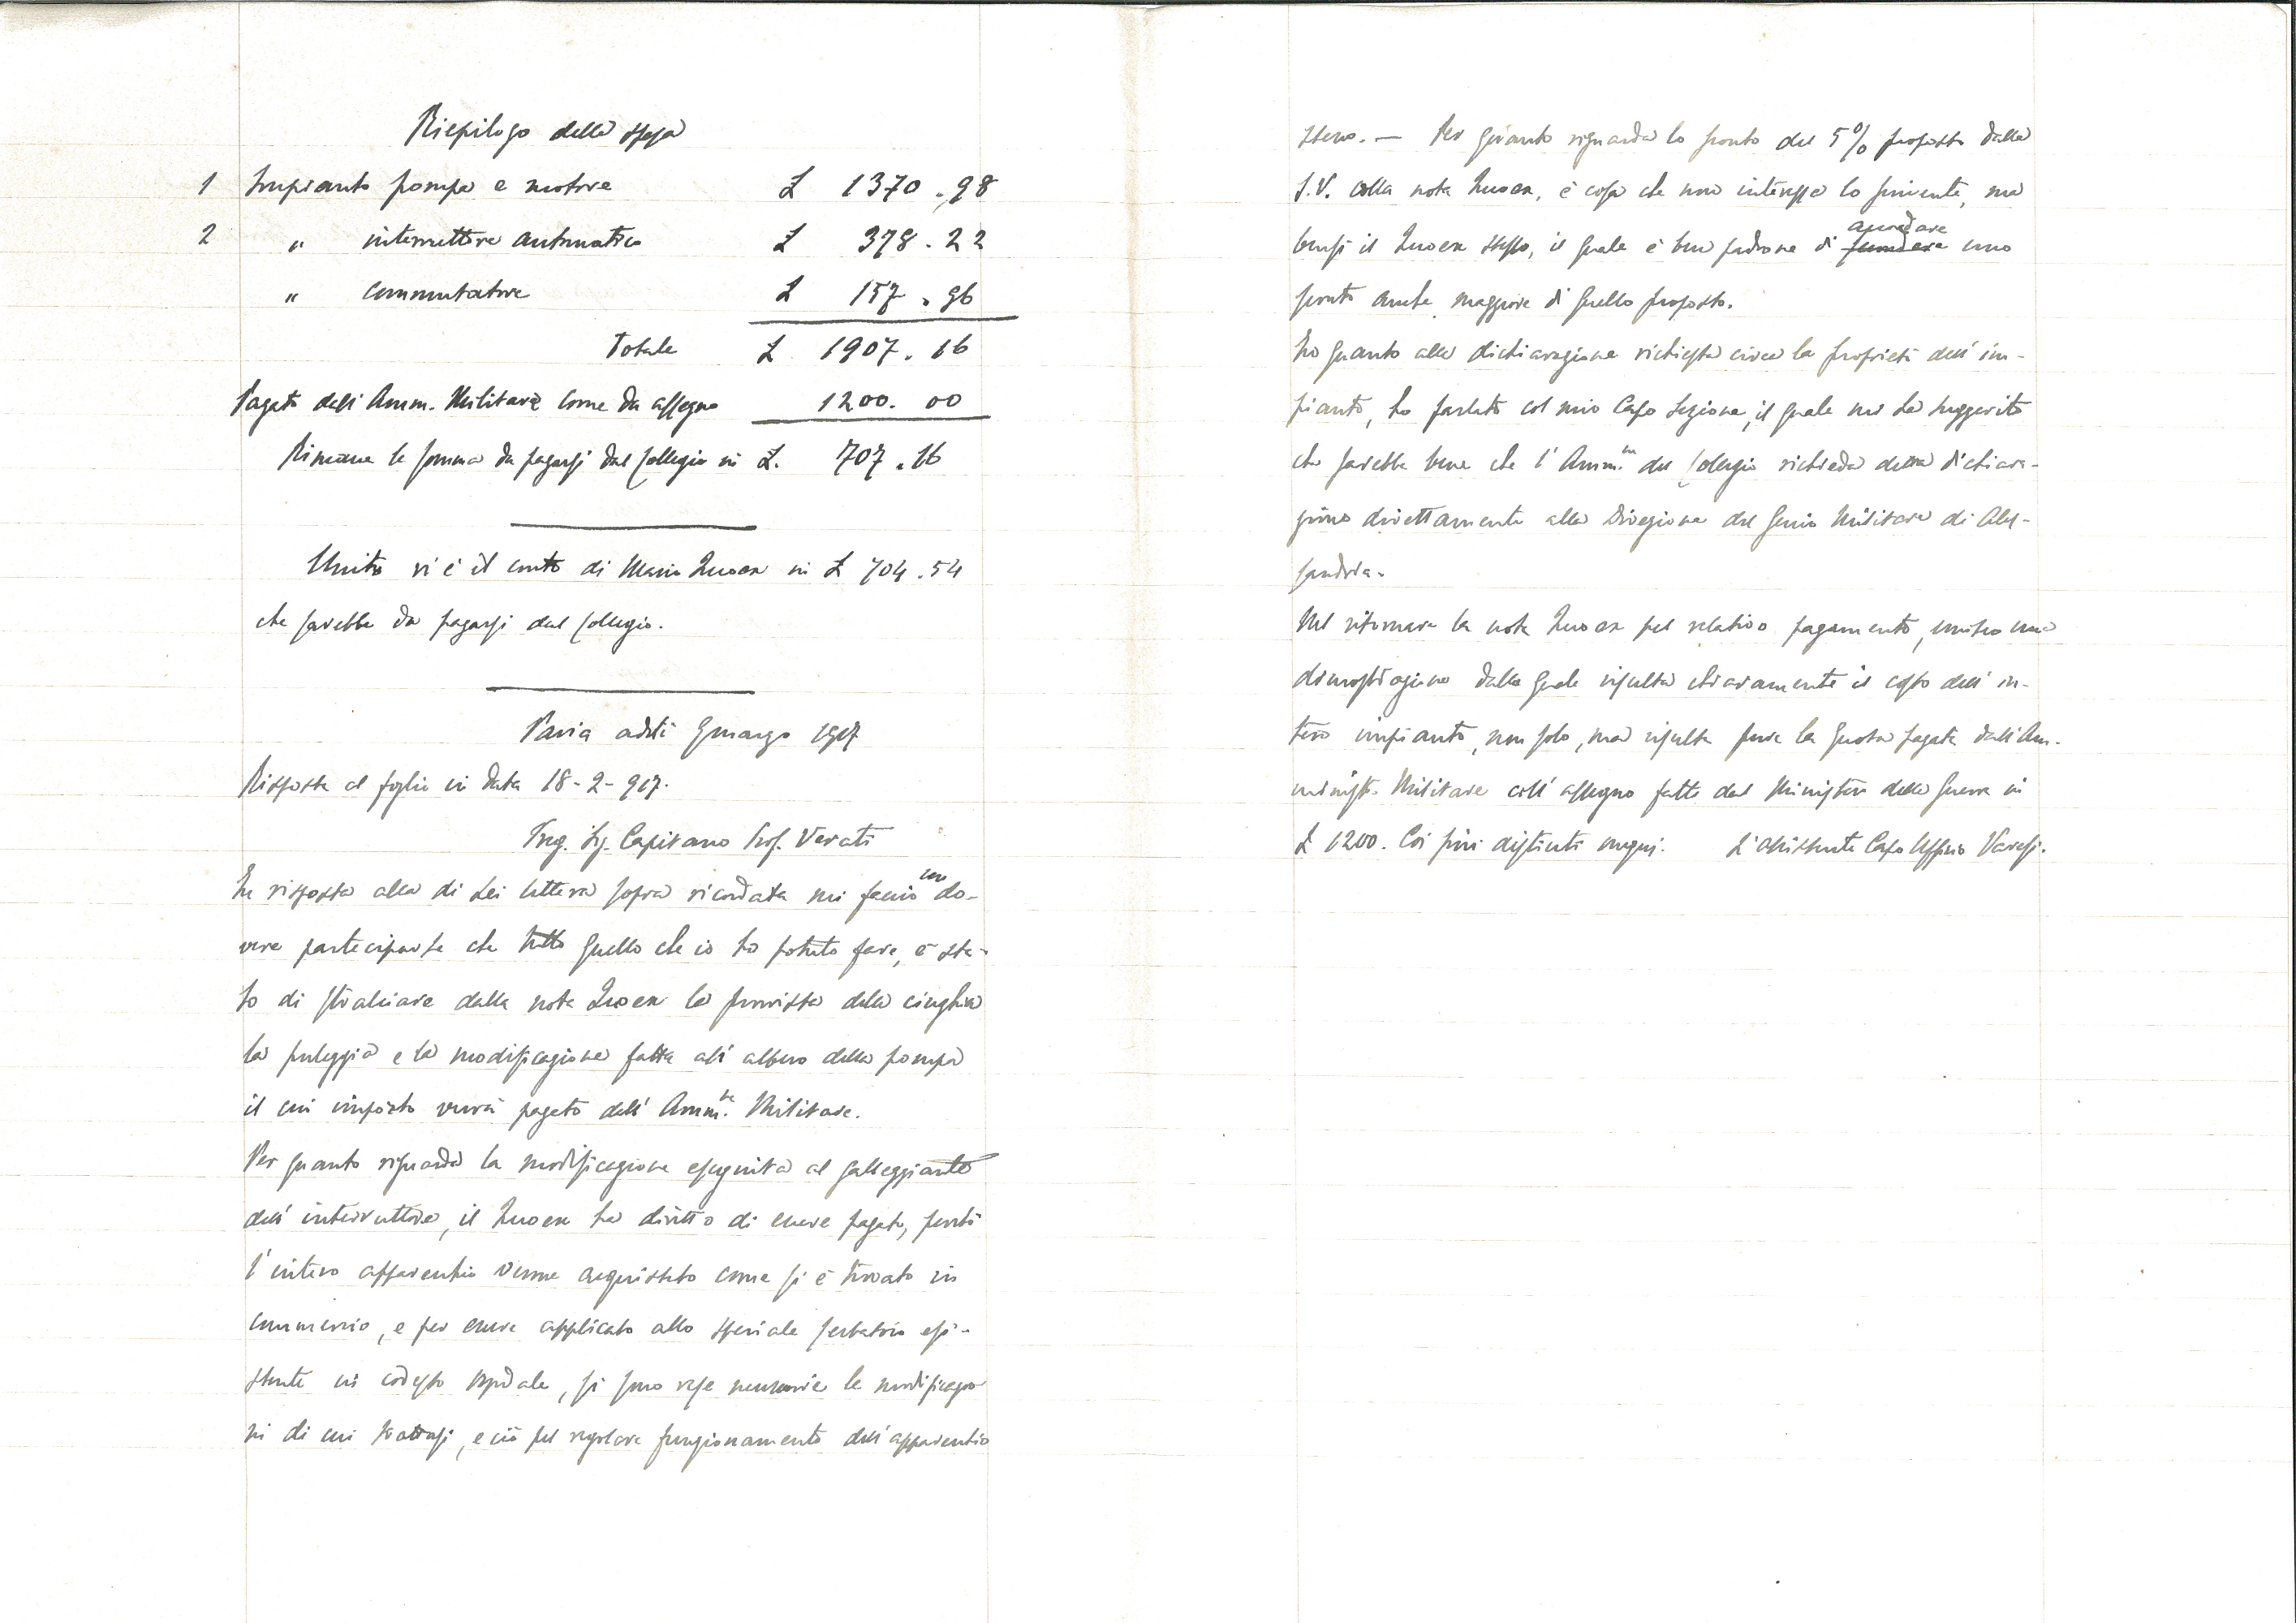 Riepilogo della spesa
1 Impianto pompa e motore £ 1370.98
2 " interruttore automatico £ 378.22
" commutatore £ 157.96
Totale £ 1907.16
Pagato dall'Amm. Militare come da assegno 1200.00
Rimane la somma da pagarsi dal Collegio in £. 707.16
Unito vi è il conto di Mario in £ 704.54
che sarebbe da pagarsi dal Collegio.
Pavia addì 9 marzo 1917
Risposta al foglio in data 18-2-917.
Preg. Sig. Capitano Prof. Verati
In risposta alla di Lei lettera sopra ricordata mi faccio un do-
vere parteciparle che tutto quello che io ho potuto fare, è sta-
to di stralciare dalla nota la provvista della cinghia
la puleggia e la modificazione fatta all'albero della pompa
il cui importo verrà pagato dall'Amm.ne Militare.
Per quanto riguarda la modificazione eseguita al galleggiante
dell'interruttore, il ha diritto di essere pagato, perchè
l'intero apparecchio venne acquistato come si è trovato in
commercio, e per essere applicato allo speciale serbatoio esi-
stente in codesto ospedale, si sono rese necessarie le modificazio-
ni di cui trattasi, e ciò pel regolare funzionamento dell'apparecchio
stesso. — Per quanto riguarda lo sconto del 5% proposto dalla
S.V. colla nota, è cosa che non interessa lo scrivente, ma
bensì il stesso, il quale è ben padrone di accordare uno
sconto anche maggiore di quello proposto.
In quanto alla dichiarazione richiesta circa la proprietà dell'im-
pianto, ho parlato col mio Capo Sezione, il quale mi ha suggerito
che sarebbe bene che l'Amm.ne del Collegio richieda detta dichiara-
zione direttamente alla Direzione del Genio Militare di Ales-
sandria.
Nel ritornare la nota pel relativo pagamento, unisco una
dimostrazione dalla quale risulta chiaramente il costo dell'in-
tero impianto, non solo, ma risulta pure la quota pagata dall'Am-
ministr. Militare coll'assegno fatto dal Ministero della Guerra in
£ 1200. Coi più distinti ossequi. L'assistente Capo Ufficio Varesi.